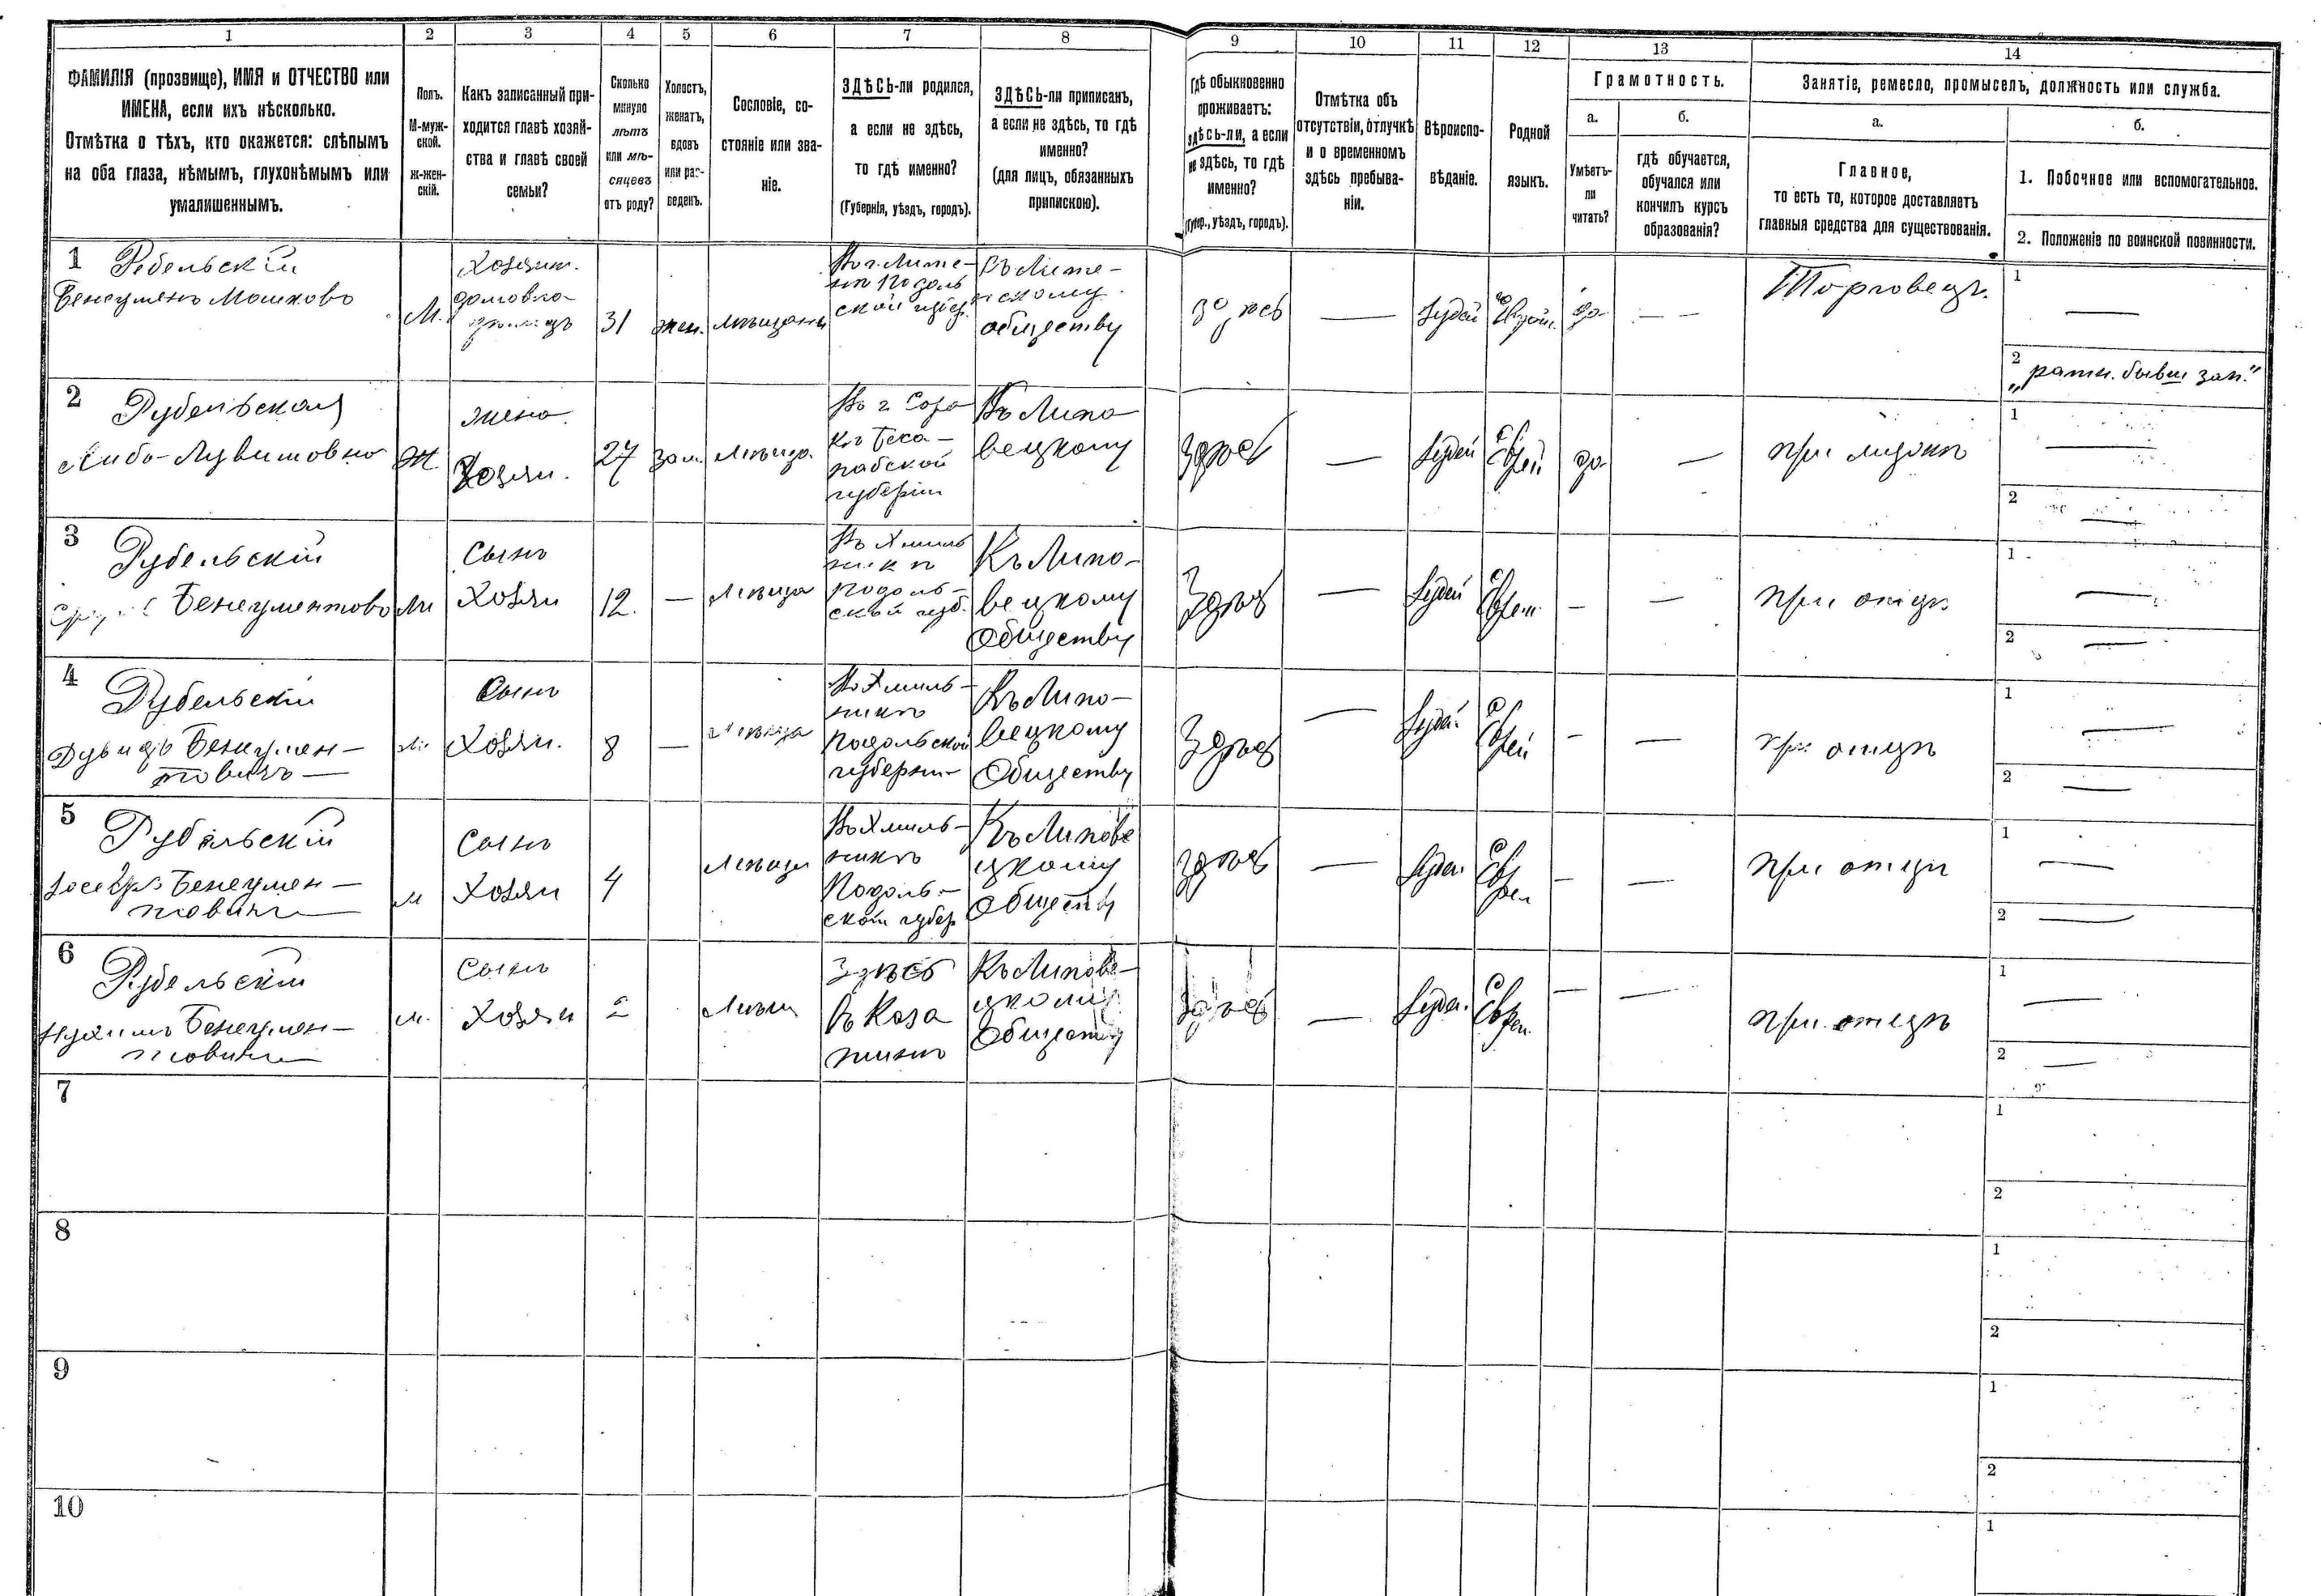 1
2
3
4
5
6
7
8
9
10
11
12
13
14
ФАМИЛІЯ (прозвище), ИМЯ и ОТЧЕСТВО или
ИМЕНА, если ихъ нѣсколько.
Отмѣтка о тѣхъ, кто окажется: слѣпымъ
на оба глаза, нѣмымъ, глухонѣмымъ или
умалишеннымъ.
Полъ.
М-муж-
ской.
ж-жен-
скій.
Какъ записанный при-
ходится главѣ хозяй-
ства и главѣ своей
семьи?
Сколько
минуло
лѣтъ
или мѣ-
сяцевъ
отъ роду?
Холостъ,
женатъ,
вдовъ
или раз-
веденъ.
Сословіе, со-
стояніе или зва-
ніе.
ЗДѢСЬ-ли родился,
а если не здѣсь,
то гдѣ именно?
(Губернія, уѣздъ, городъ).
ЗДѢСЬ-ли приписанъ,
а если не здѣсь, то гдѣ
именно?
(для лицъ, обязанныхъ
припискою).
Гдѣ обыкновенно
проживаетъ:
здѣсь-ли, а если
не здѣсь, то гдѣ
именно?
(Губер., уѣздъ, городъ).
Отмѣтка объ
отсутствіи, отлучкѣ
и о временномъ
здѣсь пребыва-
ніи.
Вѣроиспо-
вѣданіе.
Родной
языкъ.
Грамотность.
а.
Умѣетъ-
ли
читать?
б.
гдѣ обучается,
обучался или
кончилъ курсъ
образованія?
Занятіе, ремесло, промыселъ, должность или служба.
а.
Главное,
то есть то, которое доставляетъ
главныя средства для существованія.
б.
1. Побочное или вспомогательное.
2. Положеніе по воинской повинности.
1
Ребельскій
М.
Хозяин.
31
жен.
мѣщанин
обществу
Іудей
да
Торговецъ.
1
2
„ратн. бывш зап."
2
Рубельская
Ж
жена
Хозяи.
27
зам.
Мѣща.
Въ г. Соро
къ Бесо-
рабской
губерніи
Къ Липо
вецкому
Здѣсь
Іудей
Еврей
да
при мужѣ
1
2
3
Рубельскій
Бенеументово
М
Сынъ
Хозяи
12.
Мѣща
Въ Хмиль
никѣ
Подоль-
ской губ.
Къ Липо-
вецкому
Обществу
Здѣсь
Іудей
Еврей
при отцѣ
1
2
4
Рубельскій
Бенеумен-
товичъ
м
Сынъ
Хозяи.
8
Мѣща
Въ Хмиль-
никѣ
Подольской
губерни-
Къ Липо-
вецкому
Обществу
Здѣсь
Іудей
Еврей
при отцѣ
1
2
5
Рубельскій
Іосифъ Бенеумен-
товичъ
м
Сынъ
Хозяи
4
Мѣща
Въ Хмиль-
никѣ
Подоль-
ской губер
Къ Липове
цкому
Обществу
Здѣсь
Іудеи.
Еврей
при отцѣ
1
2
6
Рубельскій
Нухимъ Бенеумен-
товичъ
м.
Сынъ
Хозяи
2
Мѣщ
Здѣсь
въ Каза
тинѣ
Къ Липове-
цкому
Обществу
Здѣсь
Іудеи.
Еврей
при отцѣ
1
2
7
1
2
8
1
2
9
1
2
10
1